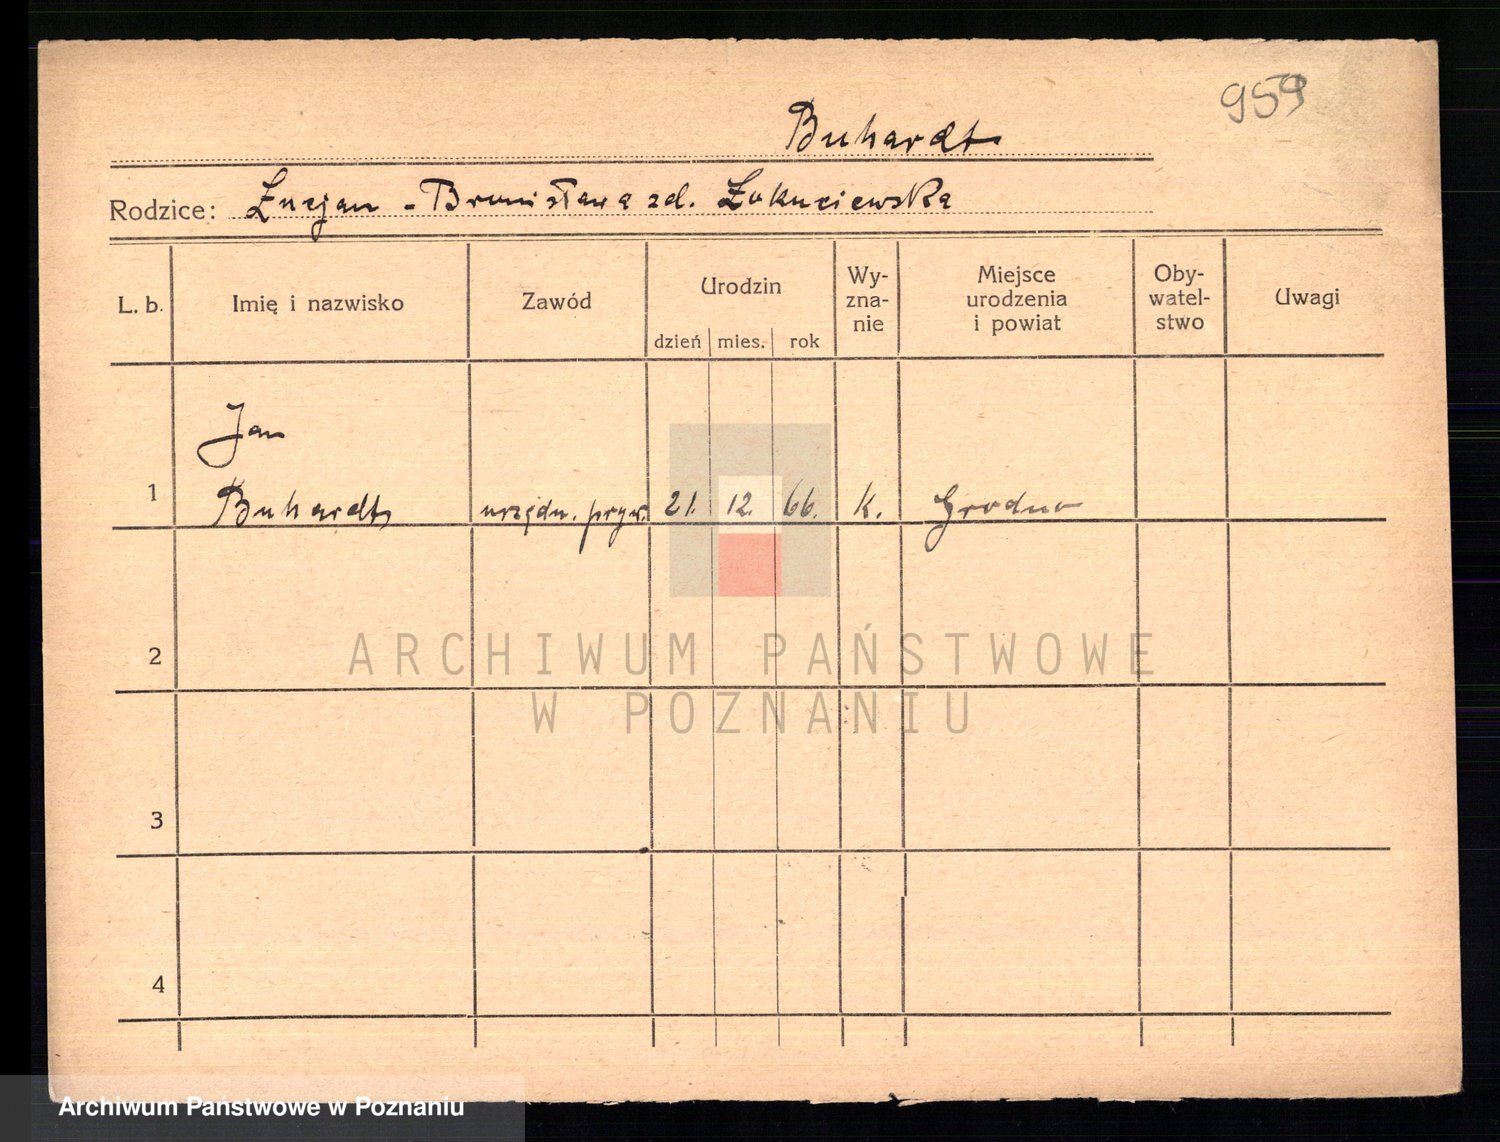 959
Buhardt
Rodzice: Łucjan - Bronisława zd. Żokuciewska
L. b. Imię i nazwisko Zawód Urodzin Wy-zna-nie Miejsce urodzenia i powiat Oby-watel-stwo Uwagi
dzień mies. rok
Jan
1 Buhardt urzędn. pryw. 21. 12. 66. K. Grodno
2
3
4
ARCHIWUM PAŃSTWOWE
W POZNANIU
Archiwum Państwowe w Poznaniu